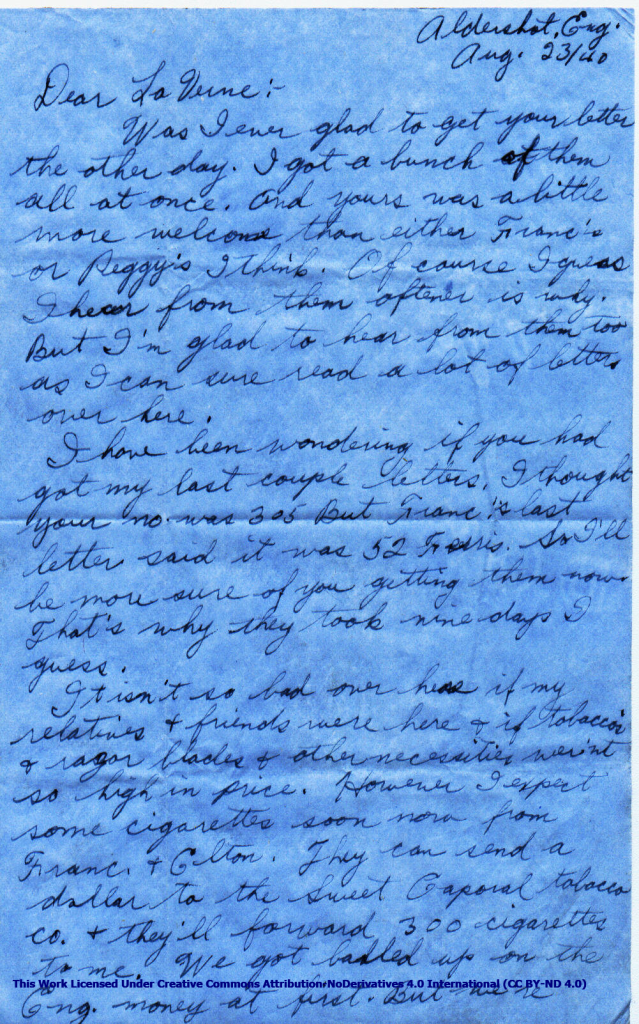 Aldershot, Eng.
Aug. 23/40
Dear La Verne:-
Was I ever glad to get your letter
the other day. I got a bunch of them
all at once. And yours was a little
more welcome than either Franc's
or Peggy's I think. Of course I guess
I hear from them oftener is why.
But I'm glad to hear from them too
as I can sure read a lot of letters
over here.
I have been wondering if you had
got my last couple letters. I thought
your no. was 305 But Franc.'s last
letter said it was 52 Ferris. So I'll
be more sure of you getting them now.
That's why they took nine days I
guess.
It isn't so bad over here if my
relatives + friends were here + if tobacco's
+ razor blades + other necessities wer'nt
so high in price. However I expect
some cigarettes soon now from
Franc. + Elton. They can send a
dollar to the Sweet Caporal tobacco
co. + they'll forward 300 cigarettes
to me. We got balled up on the
This Work Licensed Under Creative Commons Attribution-NoDerivatives 4.0 International (CC BY-ND 4.0)
Eng. money at first. But we're